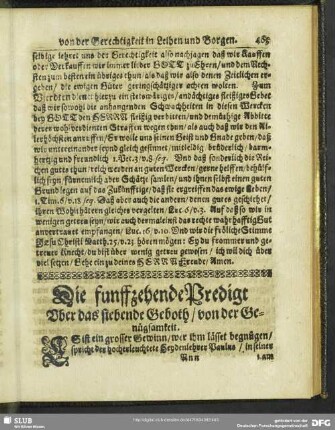 von der Gerechtigkeit in Leihen und Borgen. 465
selbige lehret uns der Gerechtigkeit also nachjagen daß wir Kauffen
oder Verkauffen wir immer lieber GOTT zu Ehren/ und dem Nech-
sten zum besten ein übriges thun/ als daß wir also denen Zeitlichen er-
geben/ die ewigen Güter geringschätziger achten wolten. Zum
Vierdten dienet hierzu ein stetswähriges/ andächtiges fleissiges Gebet/
daß wir sowohl die anhangenden Schwachheiten in diesen Wercken
bey GOTT den HERRN fleissig verbitten/ und demütige Abbitte
deren wohlverdienten Straffen wegen thun/ als auch daß wir den Al-
lerhöchsten anruffen/ Er wolle uns seinen Geist und Gnade geben/ daß
wir untereinander seynd gleich gesinnet/ mitleidig/ brüderlich/ barm-
hertzig und freundlich 1. Pet. 3/ v. 8. seq. Und daß sonderlich die Rei-
chen gutes thun/ reich werden an guten Wercken/ gerne helffen/ behülf-
lich seyn/ ihnen selbst einen guten
Grund legen auf das Zukünfftige/ daß sie ergreiffen das ewige Leben/
1. Tim. 6/ v. 18. seq. Daß aber auch die andern/ denen gutes geschiehet/
ihren Wohlthätern gleiches vergelten. Luc. 6/ v. 3. Auf daß so wir in
wenigen getreu seyn/ wir auch dermaleins das rechte wahrhafftig Gut
anvertrauet empfangen/ Luc. 16/ v. 10. Und wir die fröliche Stimme
JEsu Christi Matth. 25/ v. 23. hören mögen: Ey du frommer und ge-
treuer Knecht/ du bist über wenig getreu gewesen/ ich will dich über
viel setzen/ Gehe ein zu deines HERRN Freude/ Amen.
Die funffzehende Predigt
Vber das siebende Geboth/ von der Ge-
nügsamkeit.
ES ist ein grosser Gewinn/ wer ihm lässet begnügen/
spricht der hocherleuchtete Heydenlehrer Paulus/ in seiner
Nnn 1. am
SLUB
Wir führen Wissen.
http://digital.slub-dresden.de/
Gefördert durch die
Deutsche Forschungsgemeinschaft
DFG